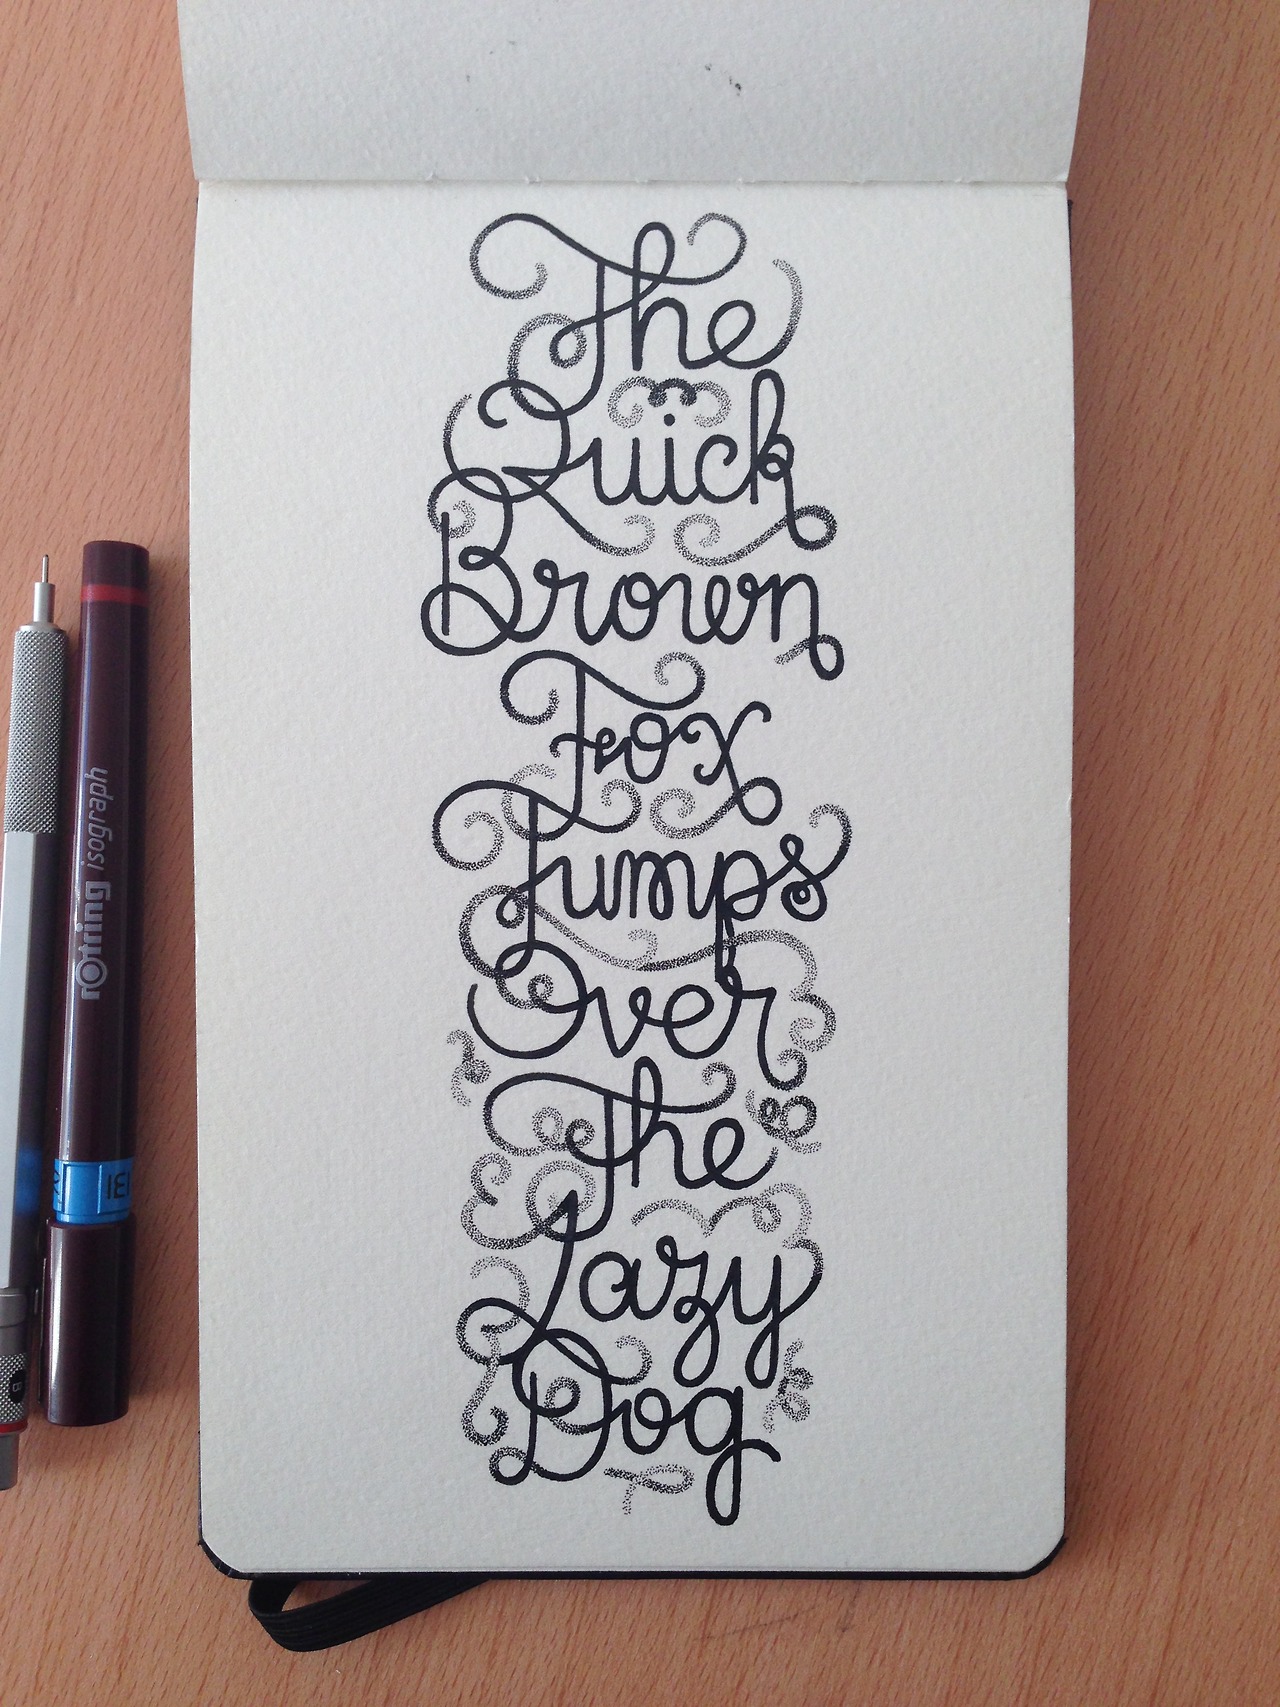 The
Quick
Brown
Fox
Jumps
Over
The
Lazy
Dog
rotring isograph